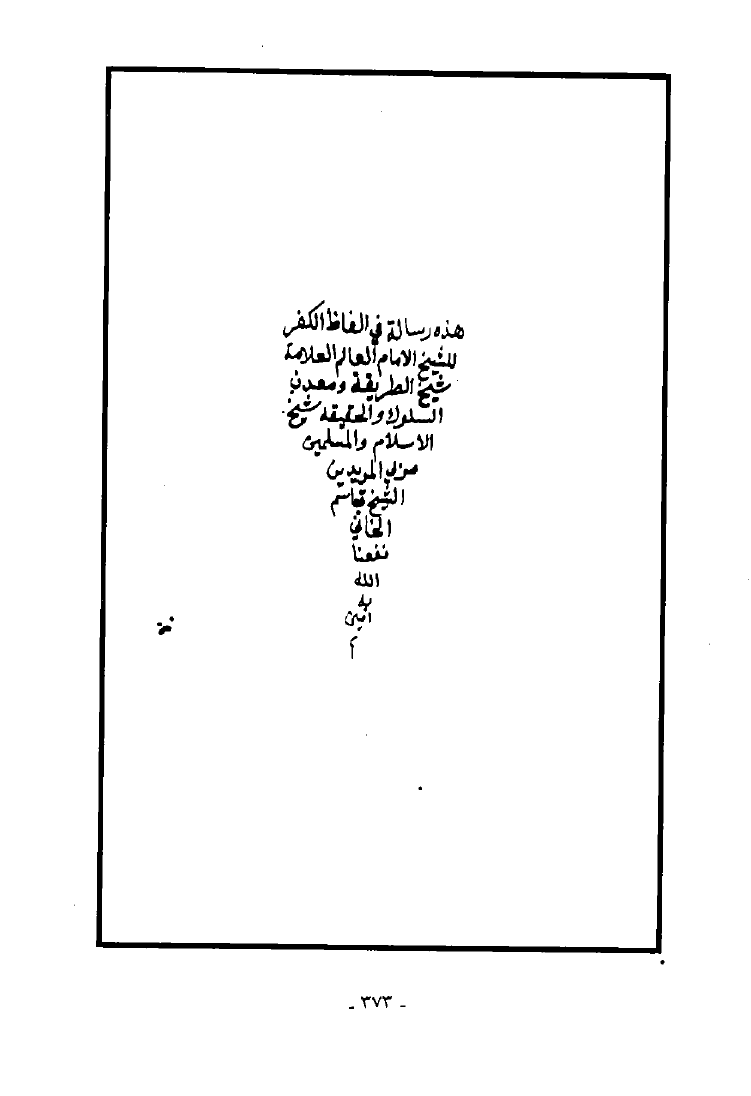 هذه رسالة في الفاظ الكفر
للشيخ الامام العالم العلامة
شيخ الطريقة ومعدن
السلوك والحقيقه شيخ
الاسلام والمسلمين
مربي المريدين
الشيخ قاسم
الخاني
نفعنا
الله
به
امين
م
- ٣٧٣ -